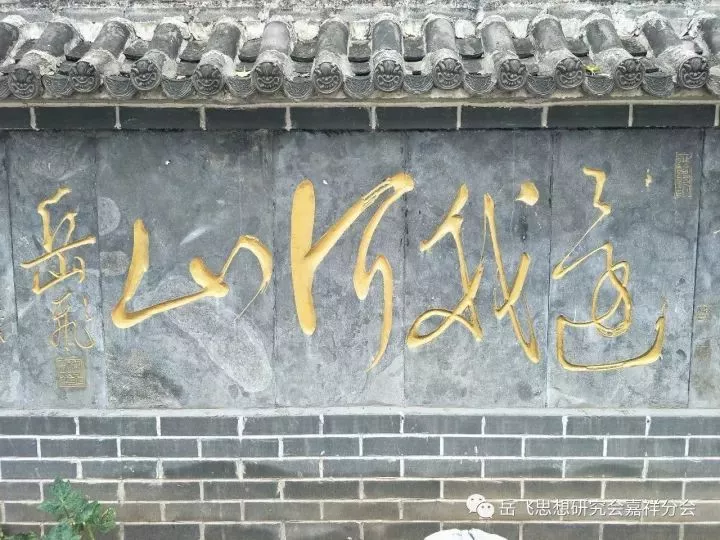 還我河山
岳飛
岳飞思想研究会嘉祥分会